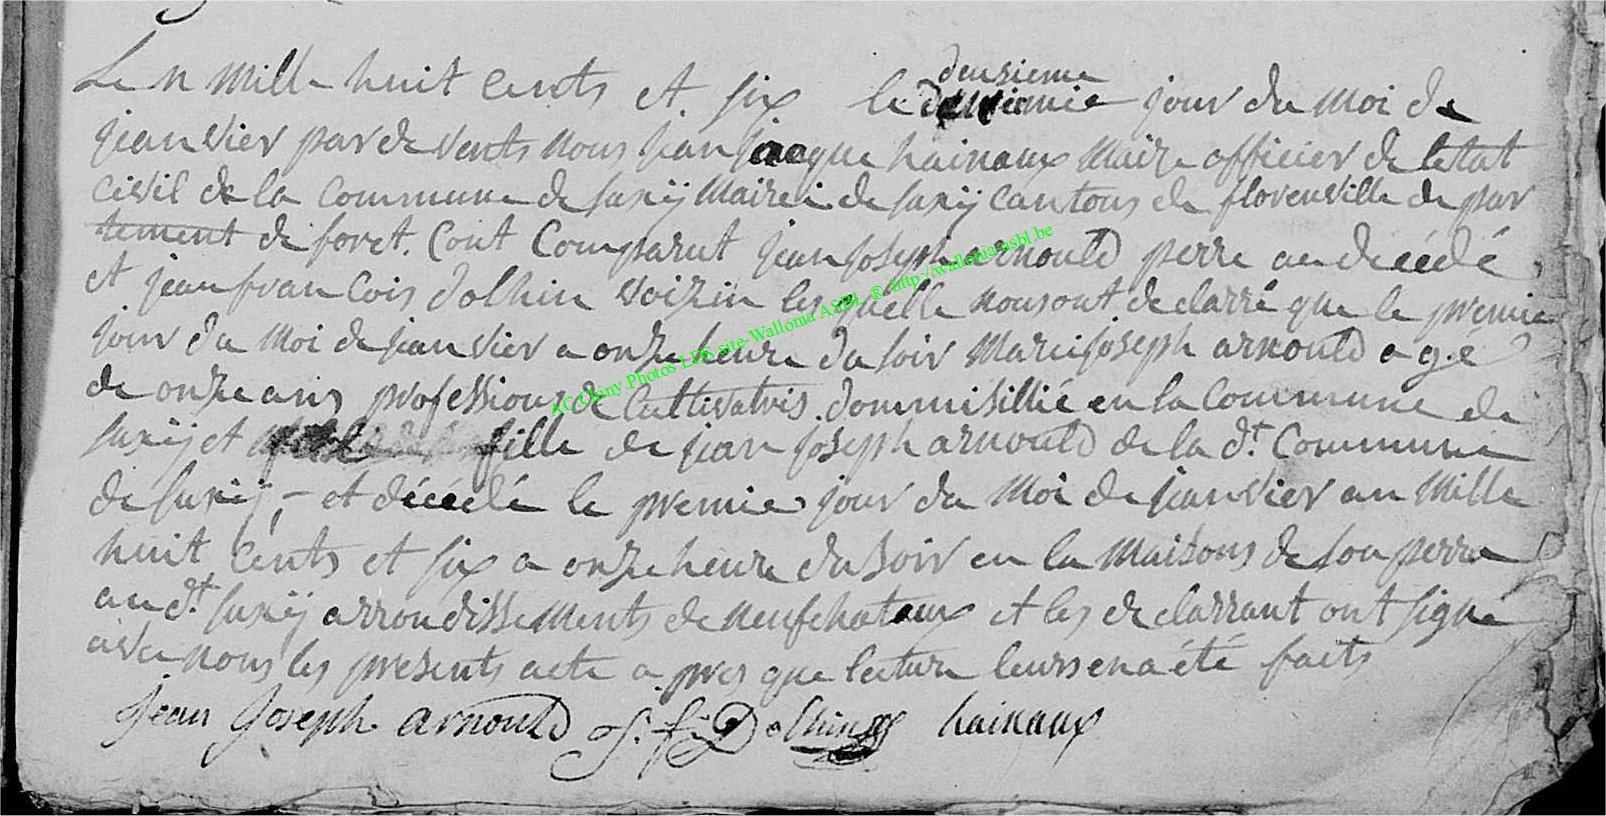 Le n mille huit cents et six le deusieme jour du moi de
jeanvier par de vents nous jean jacque hainaux Maire officier de letat
civil de la commune de suxÿ Mairei de suxÿ cantons de florenville depar
tement de foret. Cont Comparut jean joseph arnould perre au decédé
et jean francois dolhin voizin les quelle nous ont declarré que le premie
jour du moi de jeanvier a onze heure du soir Marie joseph arnould age
de onze ans profession de Cultivatris. dommisillié en la Commune de
suxÿ et fille de jean joseph arnould de la d.t Commune
de suxÿ, - et décédé le premie jour du Moi de jeanvier an Mille
huit cents et six a onze heure du soir en la Maisons de son perre
au d.t suxÿ arrondissements de neufchateaux et les declarrant ont signé
avec nous les presents acte a pres que lecture leurs en a été faits
Jean Joseph arnould J. f. Dolhin hainaux
RC Cigny Photos LDS site Wallonia ASBL ® http://walloniaasbl.be